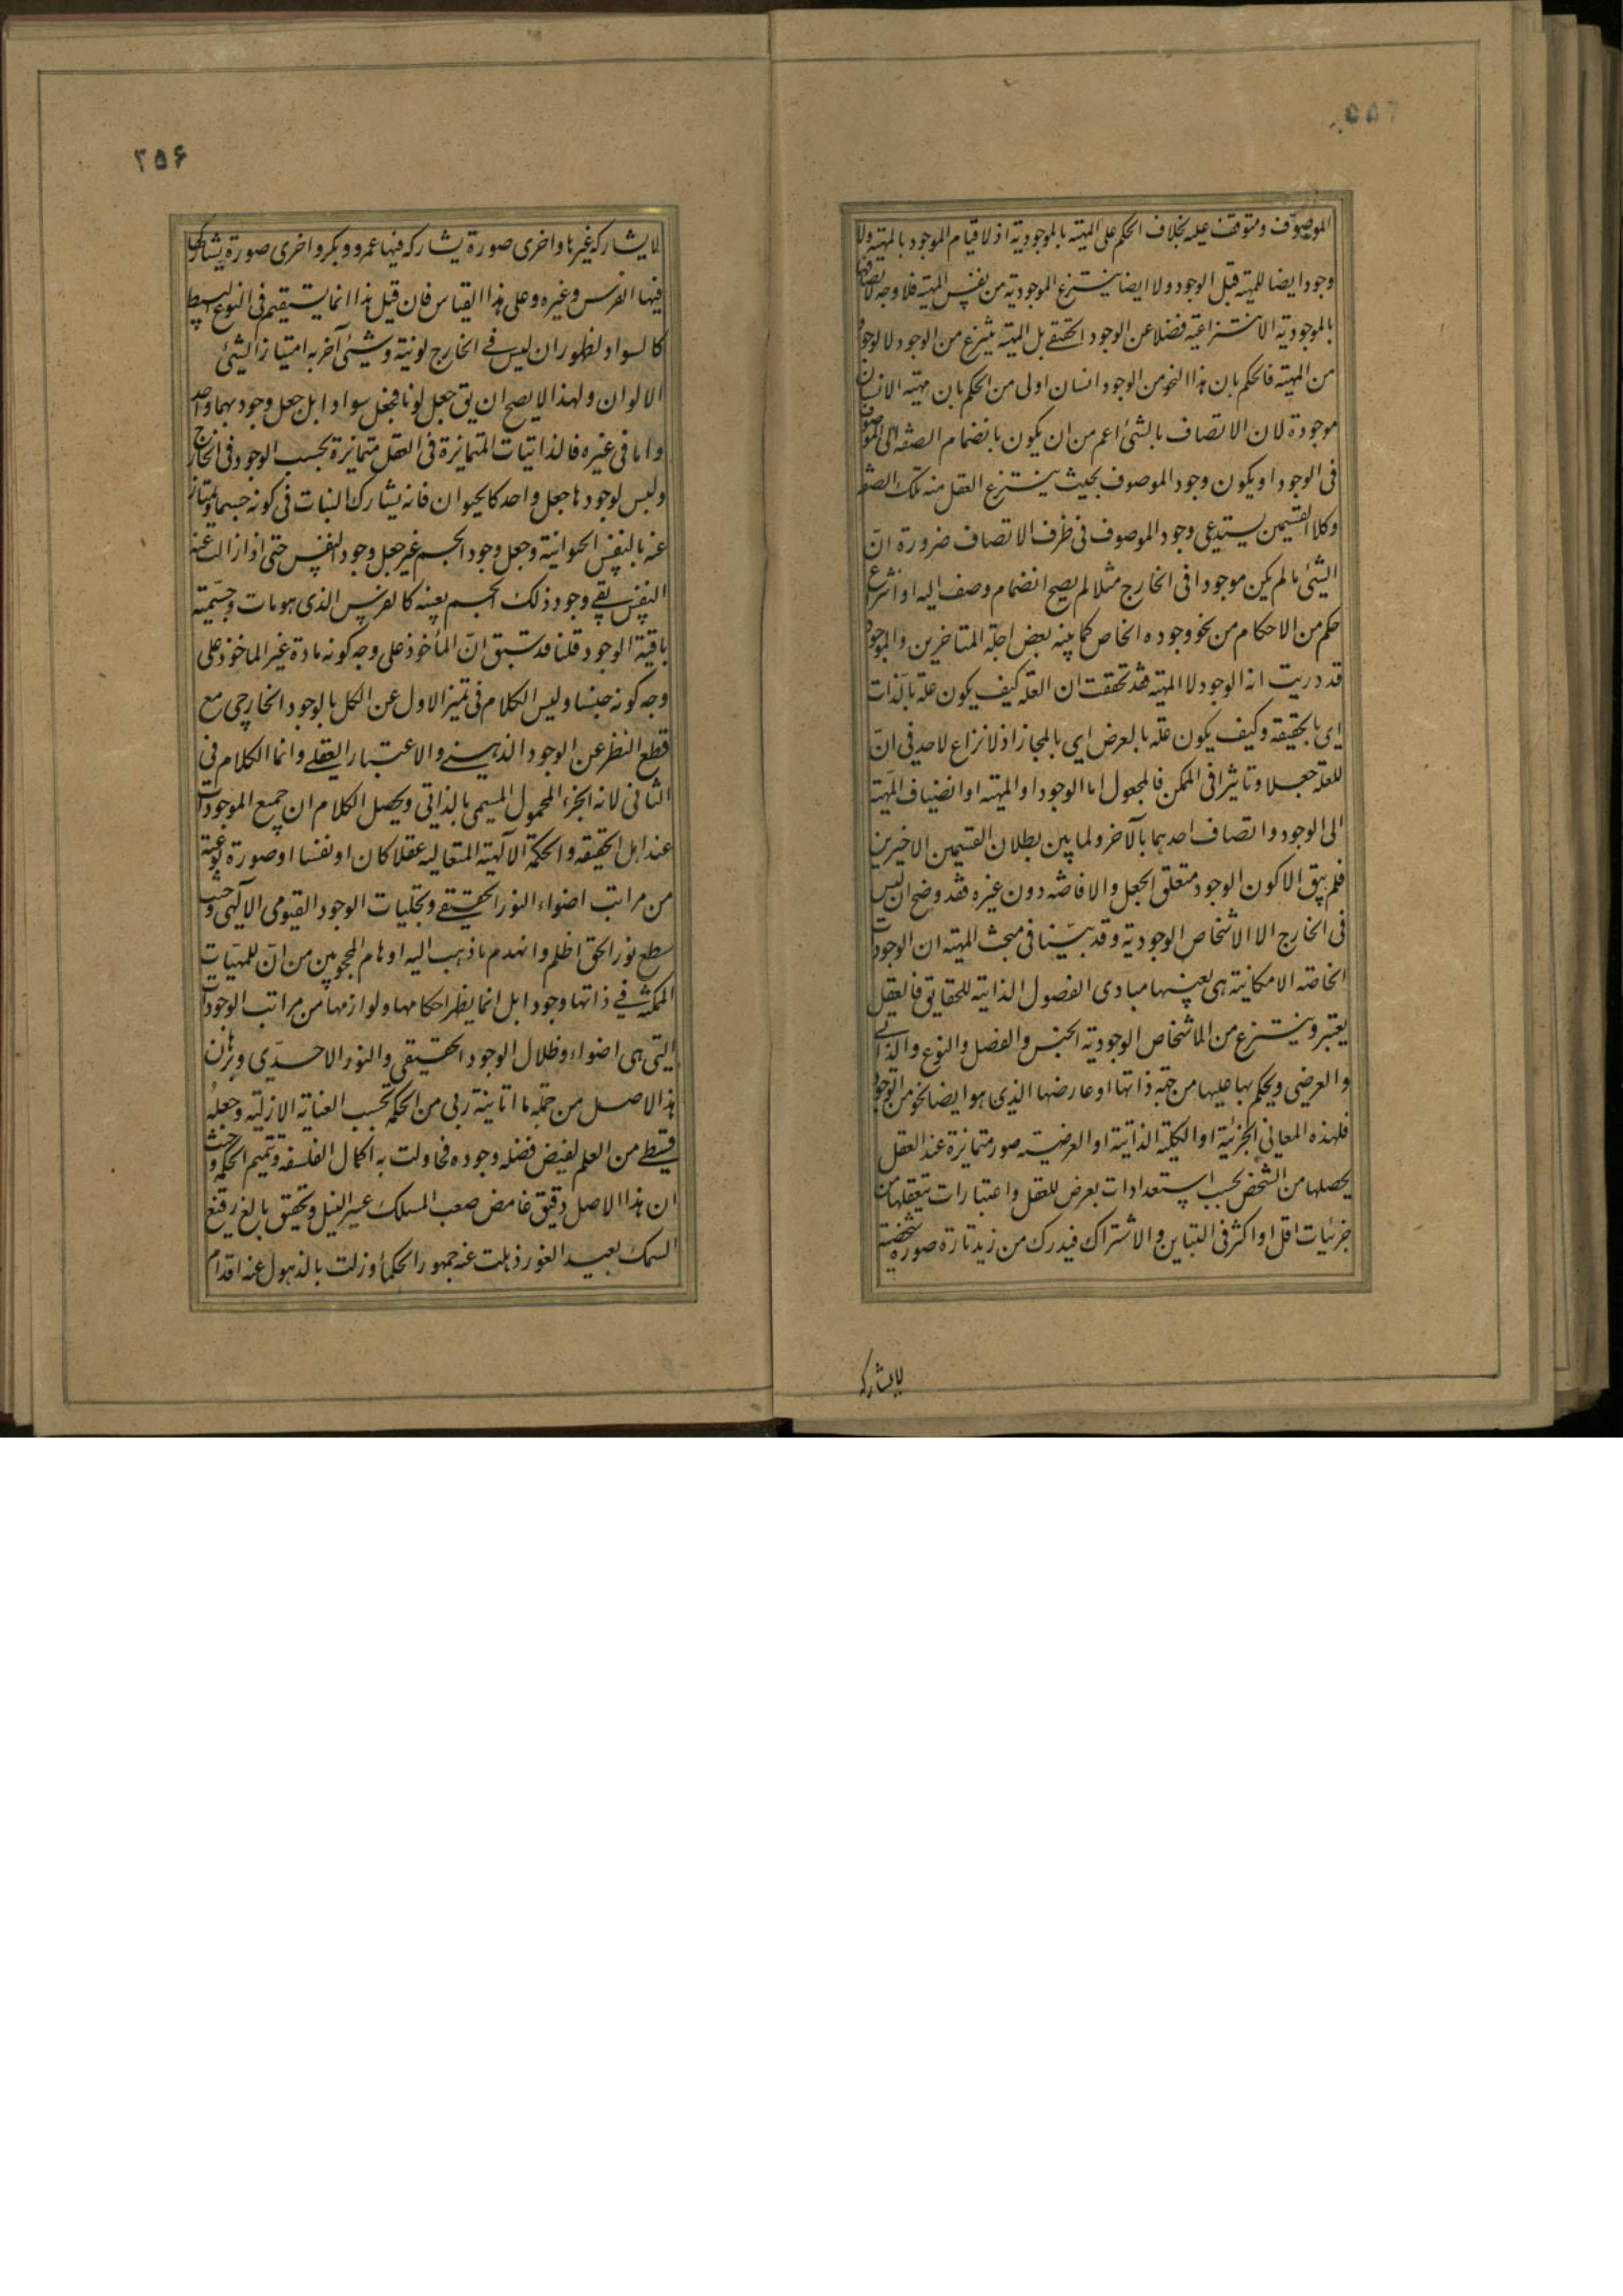 ٢٥٥
الموصوف ومتوقف عليه بخلاف الحكم على المهية بالموجودية اذ لا قيام الموجود بالمهية ولا
وجود ايضا للمهية قبل الوجود ولا ايضا ينتزع الموجودية من نفس المهية فلا وجه لاتصافها
بالموجودية الانتزاعية فضلا عن الوجود الحقيقى بل المهية ينتزع من الوجود لا الوجود
من المهية فالحكم بان هذا النحو من الوجود انسان اولى من الحكم بان مهية الانسان
موجودة لان الاتصاف بالشئ اعم من ان يكون بانضمام الصفة الى الموصوف
فى الوجود او يكون وجود الموصوف بحيث ينتزع العقل منه تلك الصفة
وكلا القسمين يستدعى وجود الموصوف فى ظرف الاتصاف ضرورة انّ
الشئ ما لم يكن موجودا فى الخارج مثلا لم يصح انضمام وصف اليه او انتزاع
حكم من الاحكام من نحو وجوده الخاص كما بينه بعض اجلّة المتاخرين والموجود
قد دريت انه الوجود لا المهية فقد تحققت ان العلة كيف يكون علة بالذات
اى بالحقيقة وكيف يكون علة بالعرض اى بالمجاز اذ لا نزاع لاحد فى انّ
للعلة جعلا وتاثيرا فى الممكن فالمجعول اما الوجود او المهية او انضياف المهية
الى الوجود واتصاف احدهما بالآخر ولما بين بطلان القسمين الاخيرين
فلم يبق الا كون الوجود متعلق الجعل والافاضة دون غيره فقد وضح ان ليس
فى الخارج الا الاشخاص الوجودية وقد بيّنا فى مبحث المهية ان الوجودات
الخاصة الامكانية هى بعينها مبادى الفصول الذاتية للحقايق فالعقل
يعتبر وينتزع من الاشخاص الوجودية الجنس والفصل والنوع والذاتى
والعرضى ويحكم بها عليها من جهة ذاتها او عارضها الذى هو ايضا نحو من الوجود
فلهذه المعانى الجزئية او الكلية الذاتية او العرضية صور متمايزة عند العقل
يحصلها من الشخص بحسب استعدادات يعرض للعقل واعتبارات يتعقلها من
جزئيات اقل او اكثر فى التباين والاشتراك فيدرك من زيد تارة صورة شخصية
لا يشاركه
٢٥۶
لا يشاركه غيرها واخرى صورة يشاركه فيها عمرو وبكر واخرى صورة يشاركها
فيها الفرس وغيره وعلى هذا القياس فان قيل هذا انما يستقيم فى النوع البسيط
كالسواد لظهور ان ليس فى الخارج لونية وشئ آخر به امتياز الشئ
الالوان ولهذا لا يصح ان يق جعل لونا فجعل سوادا بل جعل وجودهما واحد
واما فى غيره فالذاتيات المتمايزة فى العقل متمايزة بحسب الوجود فى الخارج
وليس لوجودها جعل واحد كالحيوان فانه يشارك النبات فى كونه جسما ويمتاز
عنه بالنفس الحيوانية وجعل وجود الجسم غير جعل وجود النفس حتى اذا زالت عنه
النفس بقى وجود ذلك الجسم بعينه كالفرس الذى هو مات وجسمية
باقية الوجود قلنا قد سبق انّ المأخوذ على وجه كونه مادة غير الماخوذ على
وجه كونه جنسا وليس الكلام فى تميز الاول عن الكل بالوجود الخارجى مع
قطع النظر عن الوجود الذهنى والاعتبار العقلى وانما الكلام فى
الثانى لانه الجزء المحمول المسمى بالذاتى ويحصل الكلام ان جميع الموجودات
عند اهل الحقيقة والحكمة الآلهية المتعالية عقلا كان او نفسا او صورة نوعية
من مراتب اضواء النور الحقيقى وتجليات الوجود القيومى الالهى وحيث
سطع نور الحق اظلم وانهدم ما ذهب اليه اوهام المحجوبين من انّ للمهيات
الممكنة فى ذاتها وجودا بل انما يظهر احكامها ولوازمها من مراتب الوجودات
التى هى اضواء وظلال الوجود الحقيقى والنور الاحدى وبرهان
هذا الاصل من جملة ما اتانيه ربى من الحكمة بحسب العناية الازلية وجعله
قسطى من العلم لفيض فضله وجوده فحاولت به اكمال الفلسفة وتتميم الحكمة وحيث
ان هذا الاصل دقيق غامض صعب المسلك عسير النيل وتحقيق بالغ رفيع
السمك بعيد الغور ذهلت عنه جمهور الحكماء وزلت بالذهول عنه اقدام